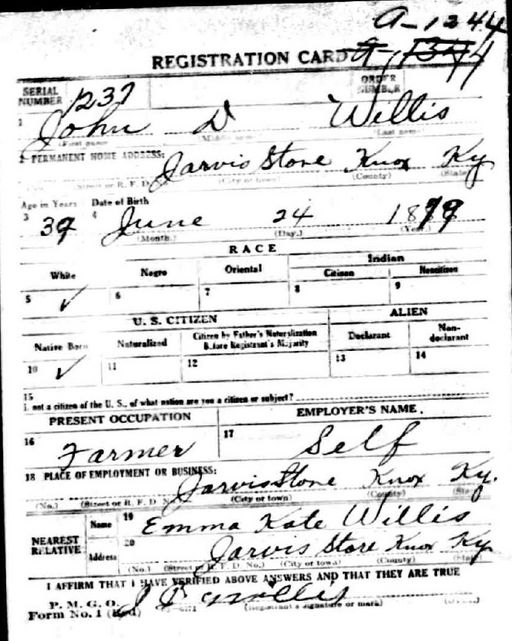 A-1344
REGISTRATION CARD
SERIAL NUMBER 1237
ORDER NUMBER
1 John D Willis
2 PERMANENT HOME ADDRESS:
Jarvis Store Knox Ky
(City or town) (County) (State)
Age in Years Date of Birth
3 39 4 June 24 1879
(Month.) (Day.) (Year.)
RACE
White Negro Oriental Indian
Citizen Noncitizen
5 ✓ 6 7 8 9
U. S. CITIZEN ALIEN
Native Born Naturalized Citizen by Father's Naturalization Before Registrant's Majority Declarant Non-declarant
10 ✓ 11 12 13 14
15
If not a citizen of the U. S., of what nation are you a citizen or subject?
PRESENT OCCUPATION EMPLOYER'S NAME.
16 Farmer 17 Self
18 PLACE OF EMPLOYMENT OR BUSINESS:
Jarvis Store Knox Ky.
(No.) (Street or R. F. D. No.) (City or town) (County) (State)
NEAREST RELATIVE
Name 19 Emma Kate Willis
Address 20 Jarvis Store Knox Ky
(No.) (City or town) (County) (State)
I AFFIRM THAT I HAVE VERIFIED ABOVE ANSWERS AND THAT THEY ARE TRUE
P. M. G. O.
Form No. 1 (Red) J D Willis
(Registrant's signature or mark)